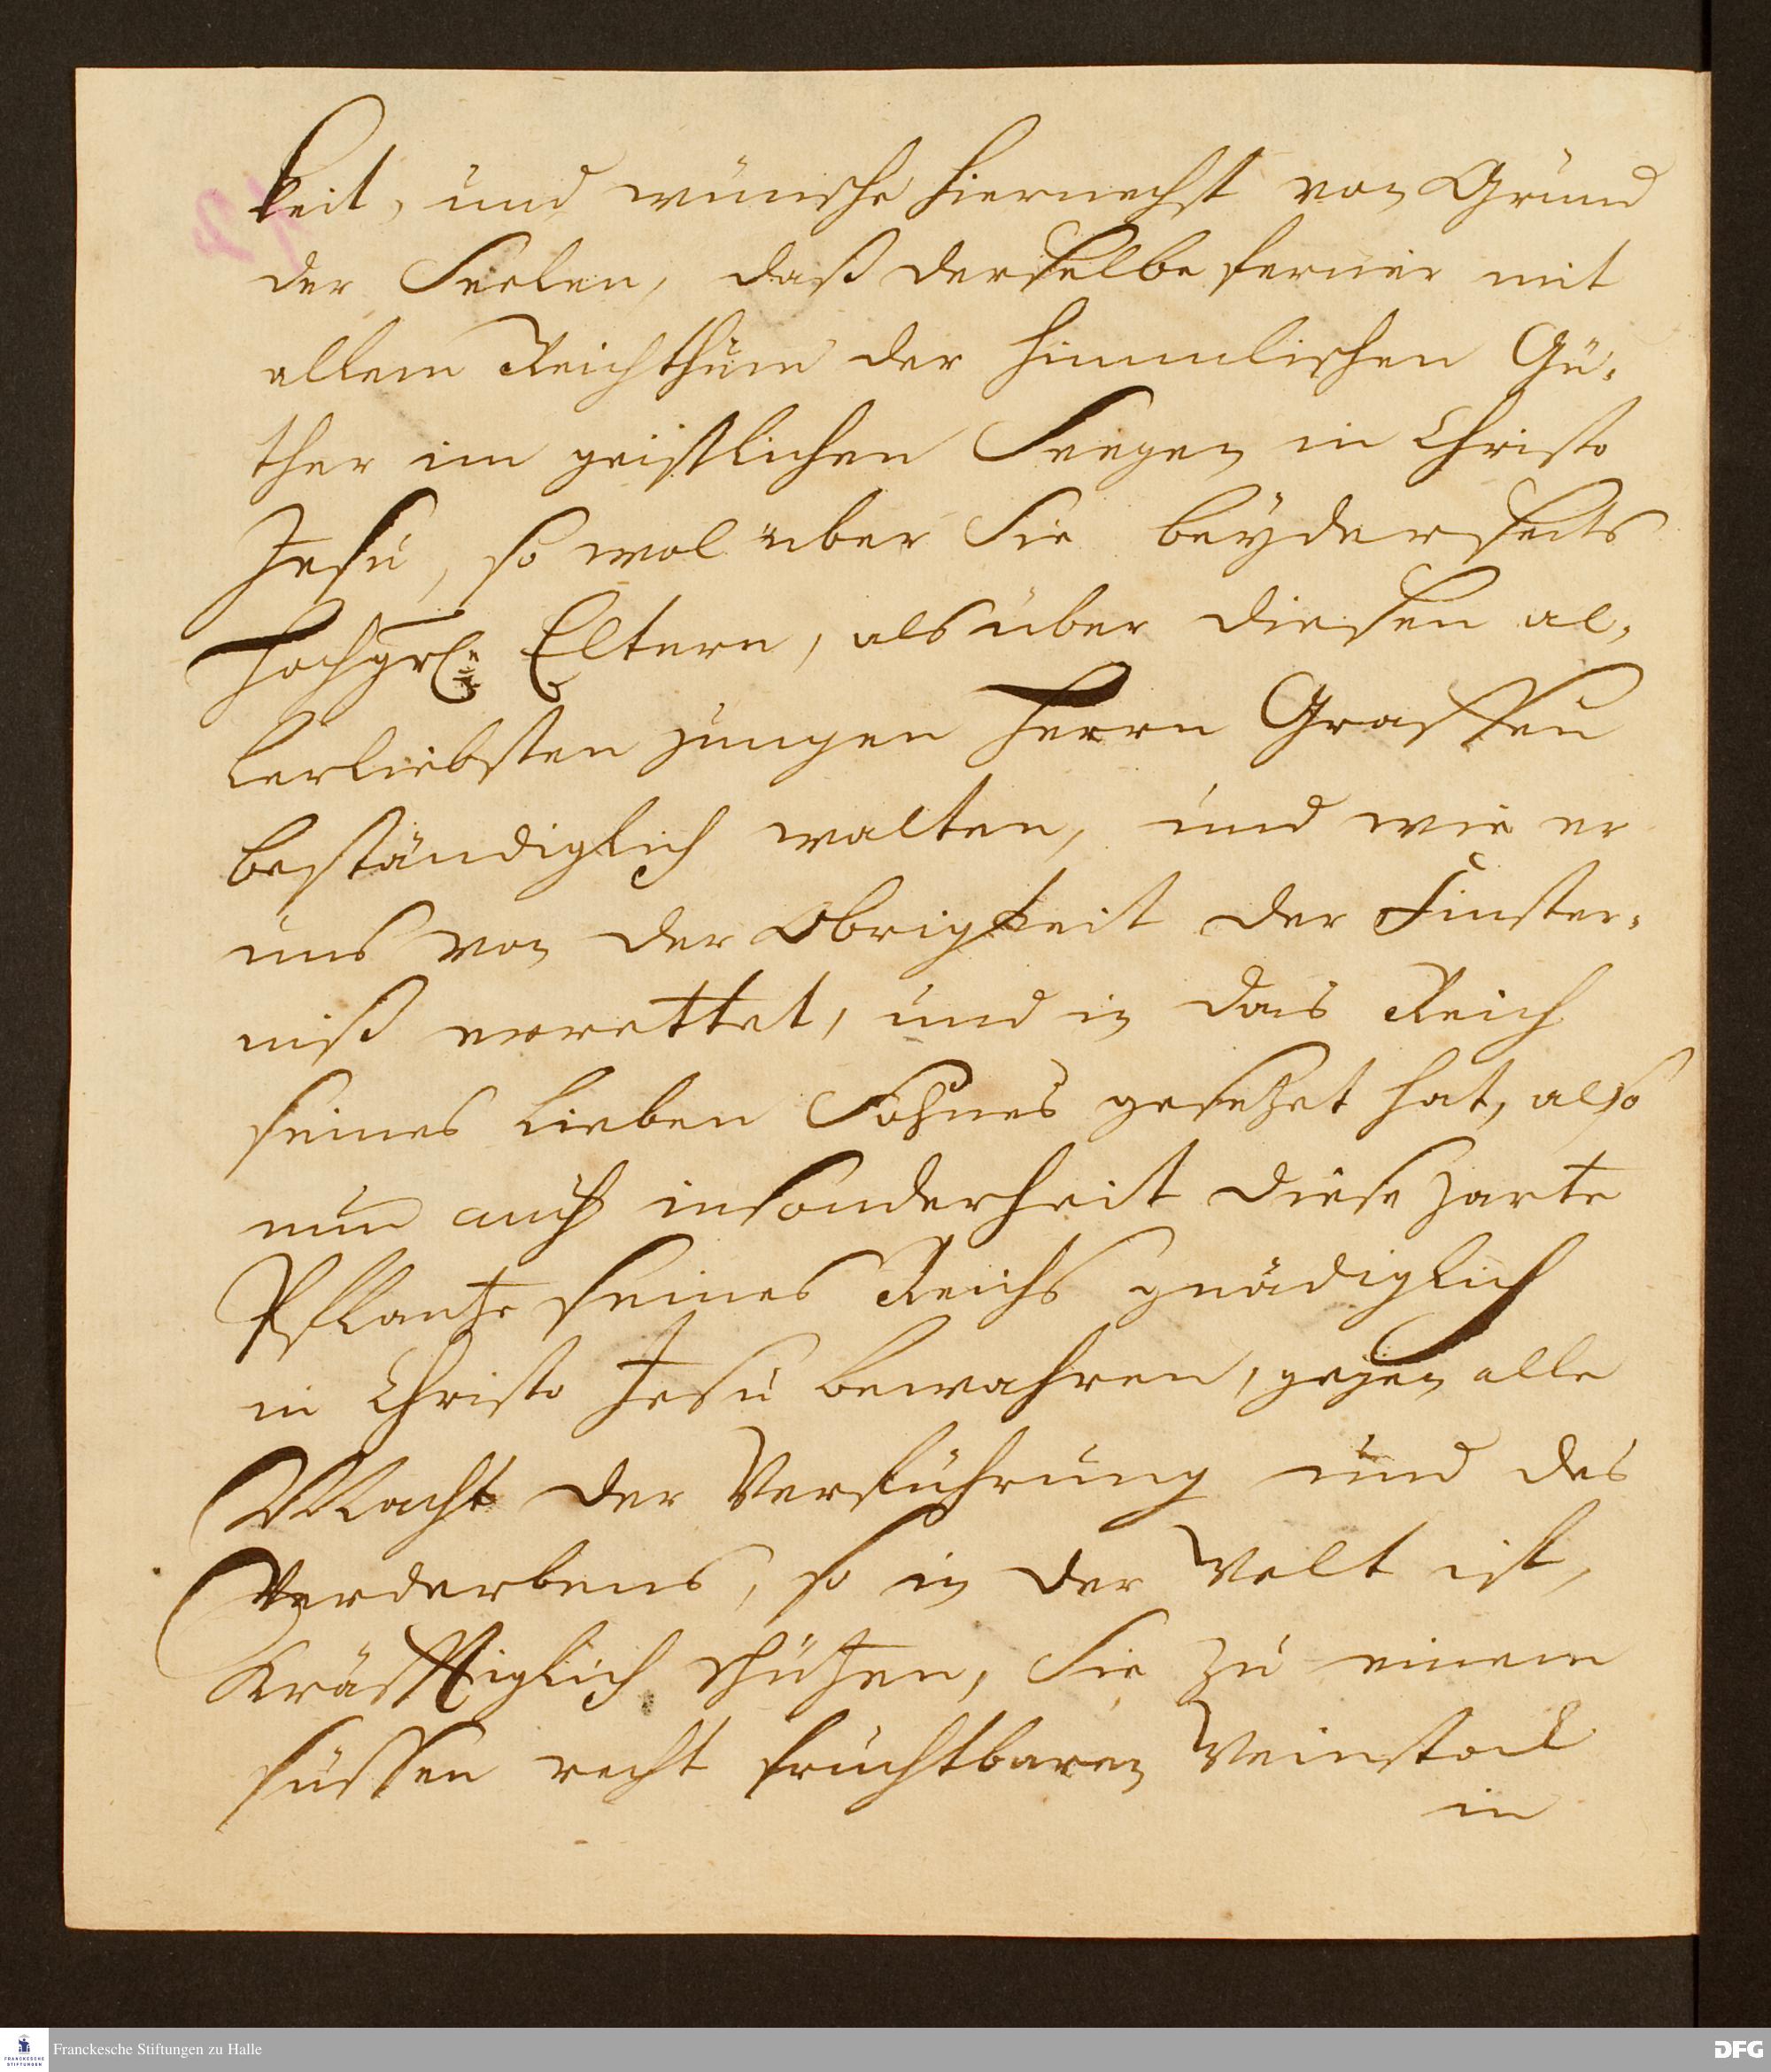 keit, und wünsche hiernechst von Grund
der Seelen, daß derselbe ferner mit
allem Reichthum der himmlischen Gü-
ther im geistlichen Seegen in Christo
Jesu, so wol über Sie beyderseits
Hochgrfl. Eltern, als über diesen al-
lerliebsten jungen Herrn Graffen
beständiglich walten, und wie er
uns von der Obrigkeit der Finster-
niß errettet, und in das Reich
seines lieben Sohnes gesetzet hat, also
nun auch insonderheit diese zarte
Pflantze seines Reichs gnädiglich
in Christo Jesu bewahren, gegen alle
Macht der Verführung und des
Verderbens, so in der Welt ist,
kräfftiglich schützen, Sie zu einem
süssen recht fruchtbaren Weinstock
in
Franckesche Stiftungen zu Halle
FRANCKESCHE
STIFTUNGEN
DFG